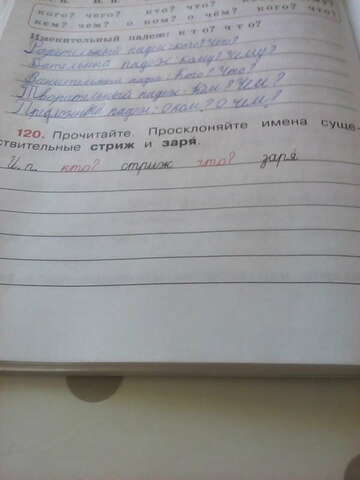 кого? чего? кто? что? кого? что?
кем? чем? о ком? о чём? кого? что?
Именительный падеж: кто? что?
Родительный падеж: кого? Чего?
Дательный падеж: Кому? Чему?
Винительный падеж: Кого? Что?
Творительный падеж: Кем? Чем?
Предложный падеж: О ком? О чём?
120. Прочитайте. Просклоняйте имена суще-
ствительные стриж и заря.
И. п. кто? стриж что? заря́